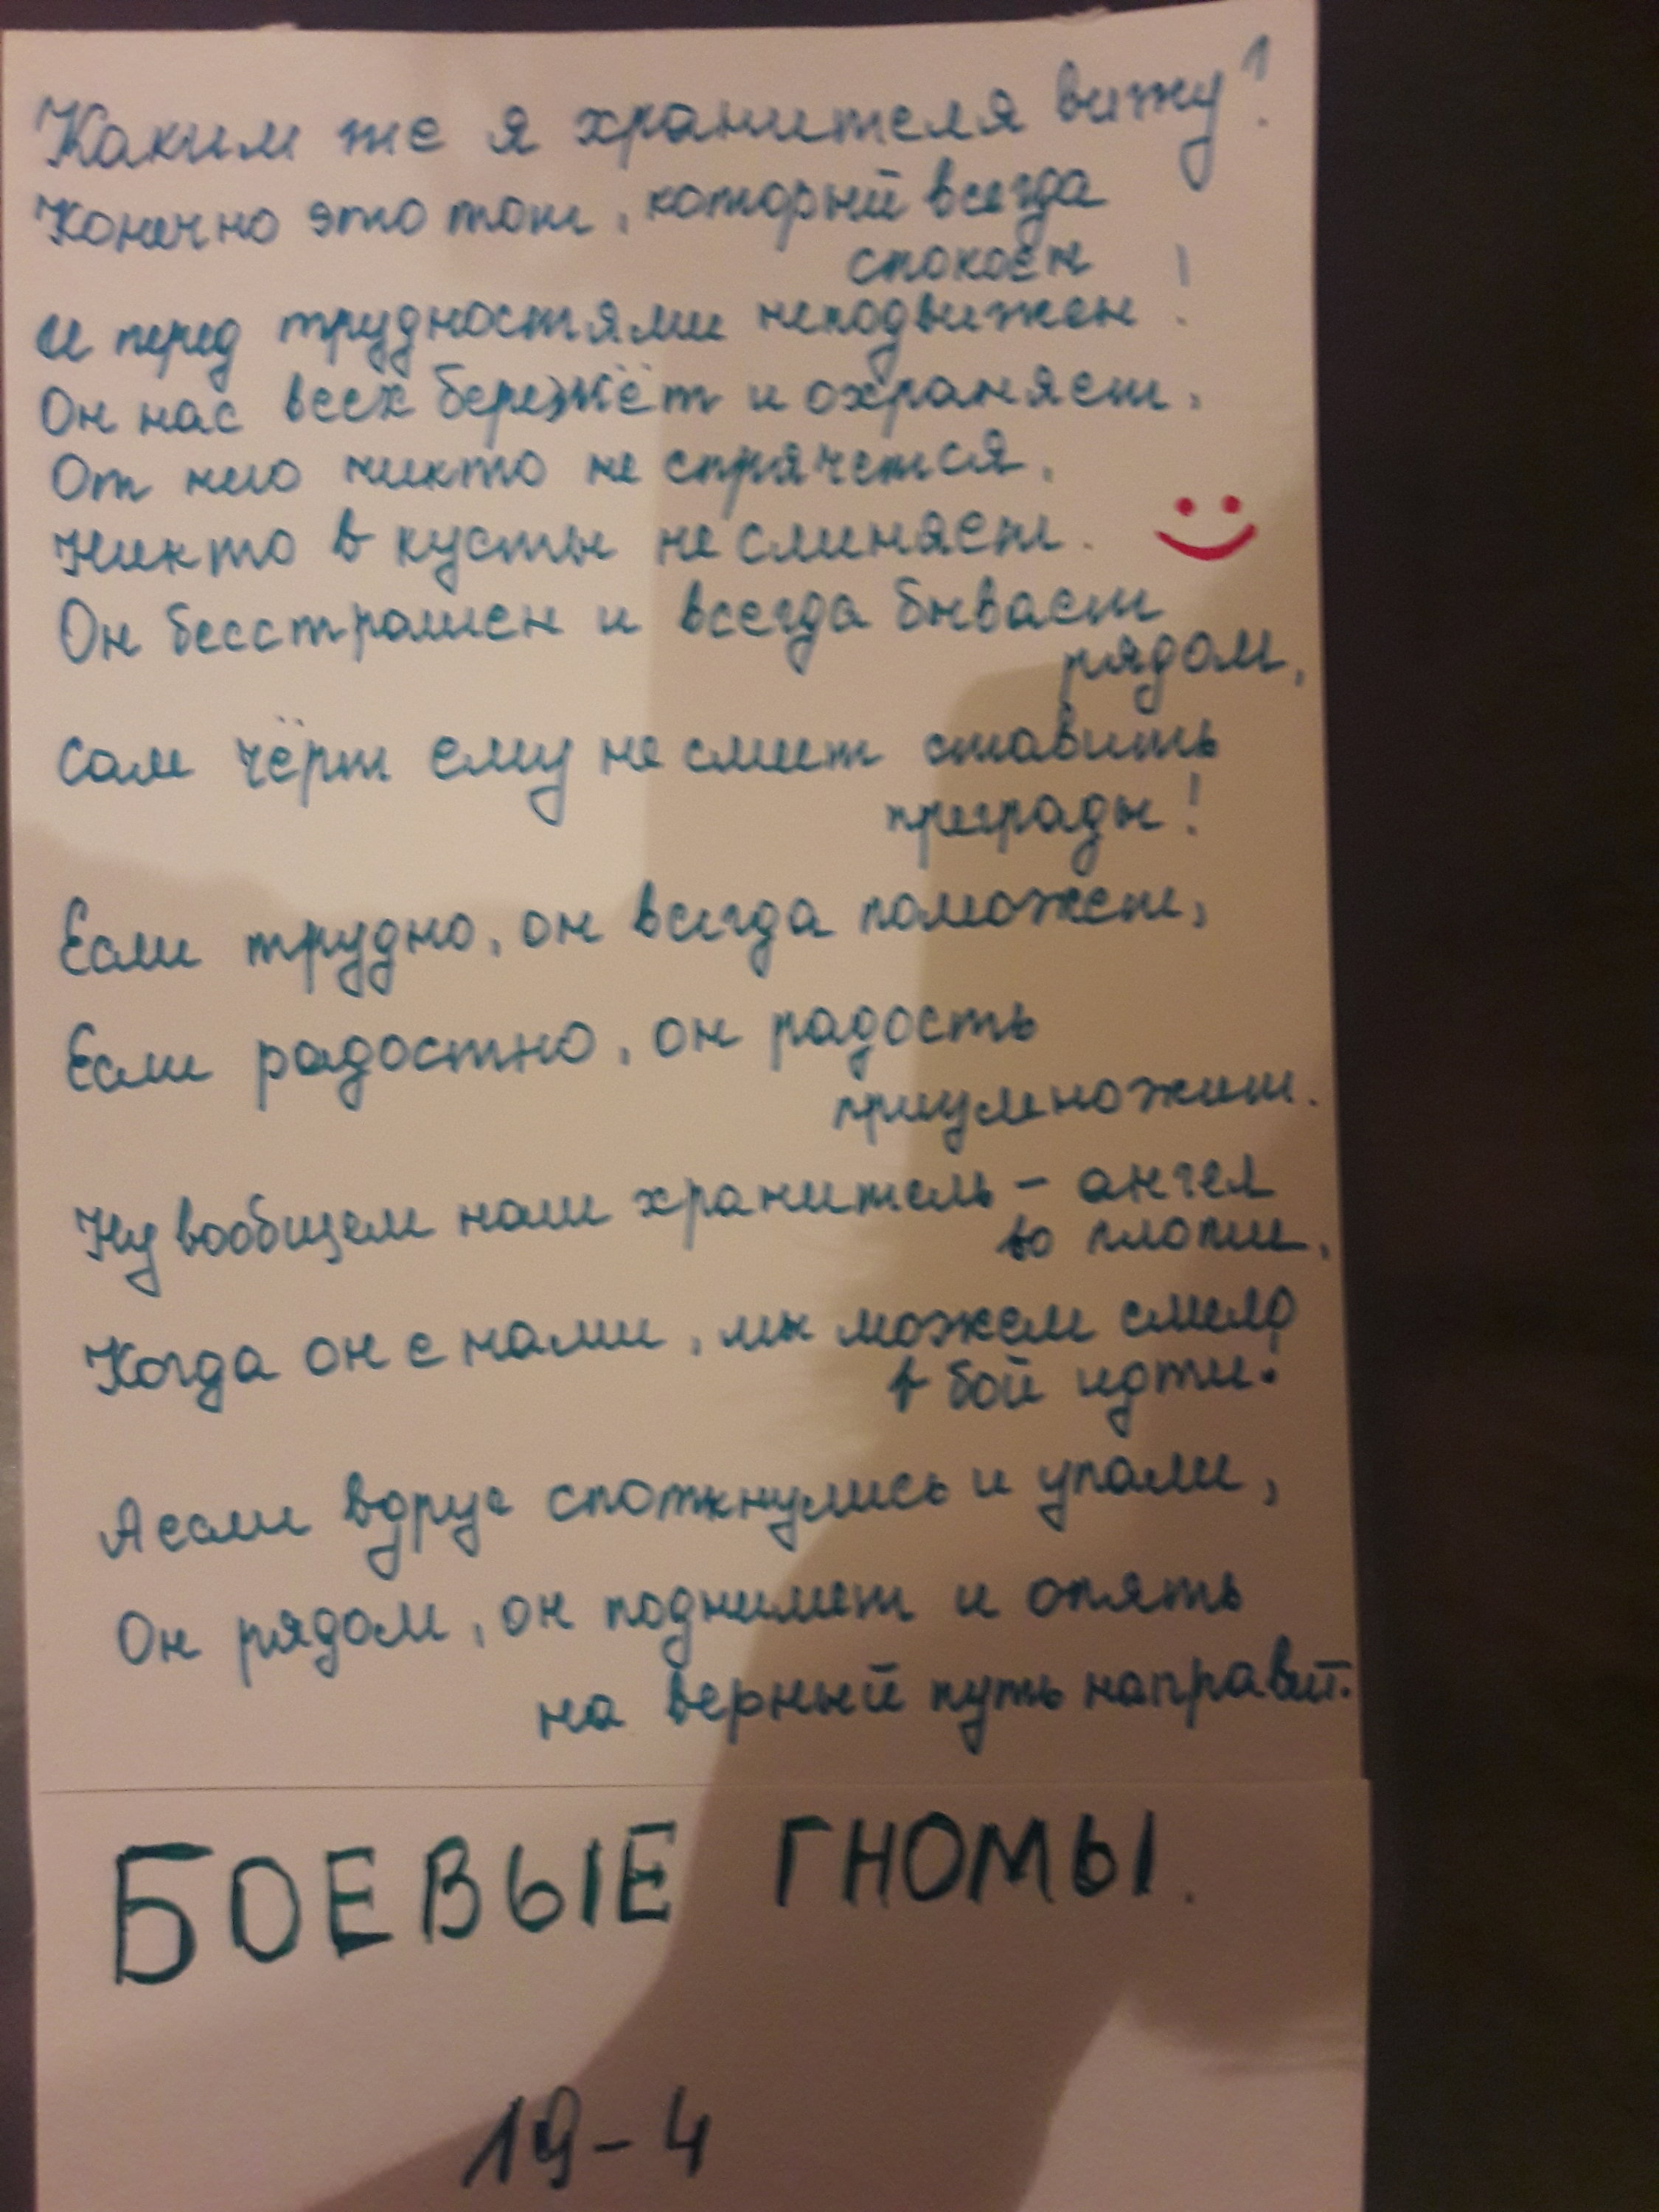 Каким же я хранителя вижу?
Конечно это тот, который всегда
спокоен
и перед трудностями неподвижен!
Он нас всех бережёт и охраняет,
От него никто не спрячется,
Никто в кусты не слиняет.
Он бесстрашен и всегда бывает
рядом,
Сам чёрт ему не смеет ставить
преграды!
Если трудно, он всегда поможет,
Если радостно, он радость
приумножит.
Ну вообщем наш хранитель - ангел
во плоти,
Когда он с нами, мы можем смело
в бой идти.
А если вдруг споткнулись и упали,
Он рядом, он поднимет и опять
на верный путь направит.
БОЕВЫЕ ГНОМЫ.
19-4